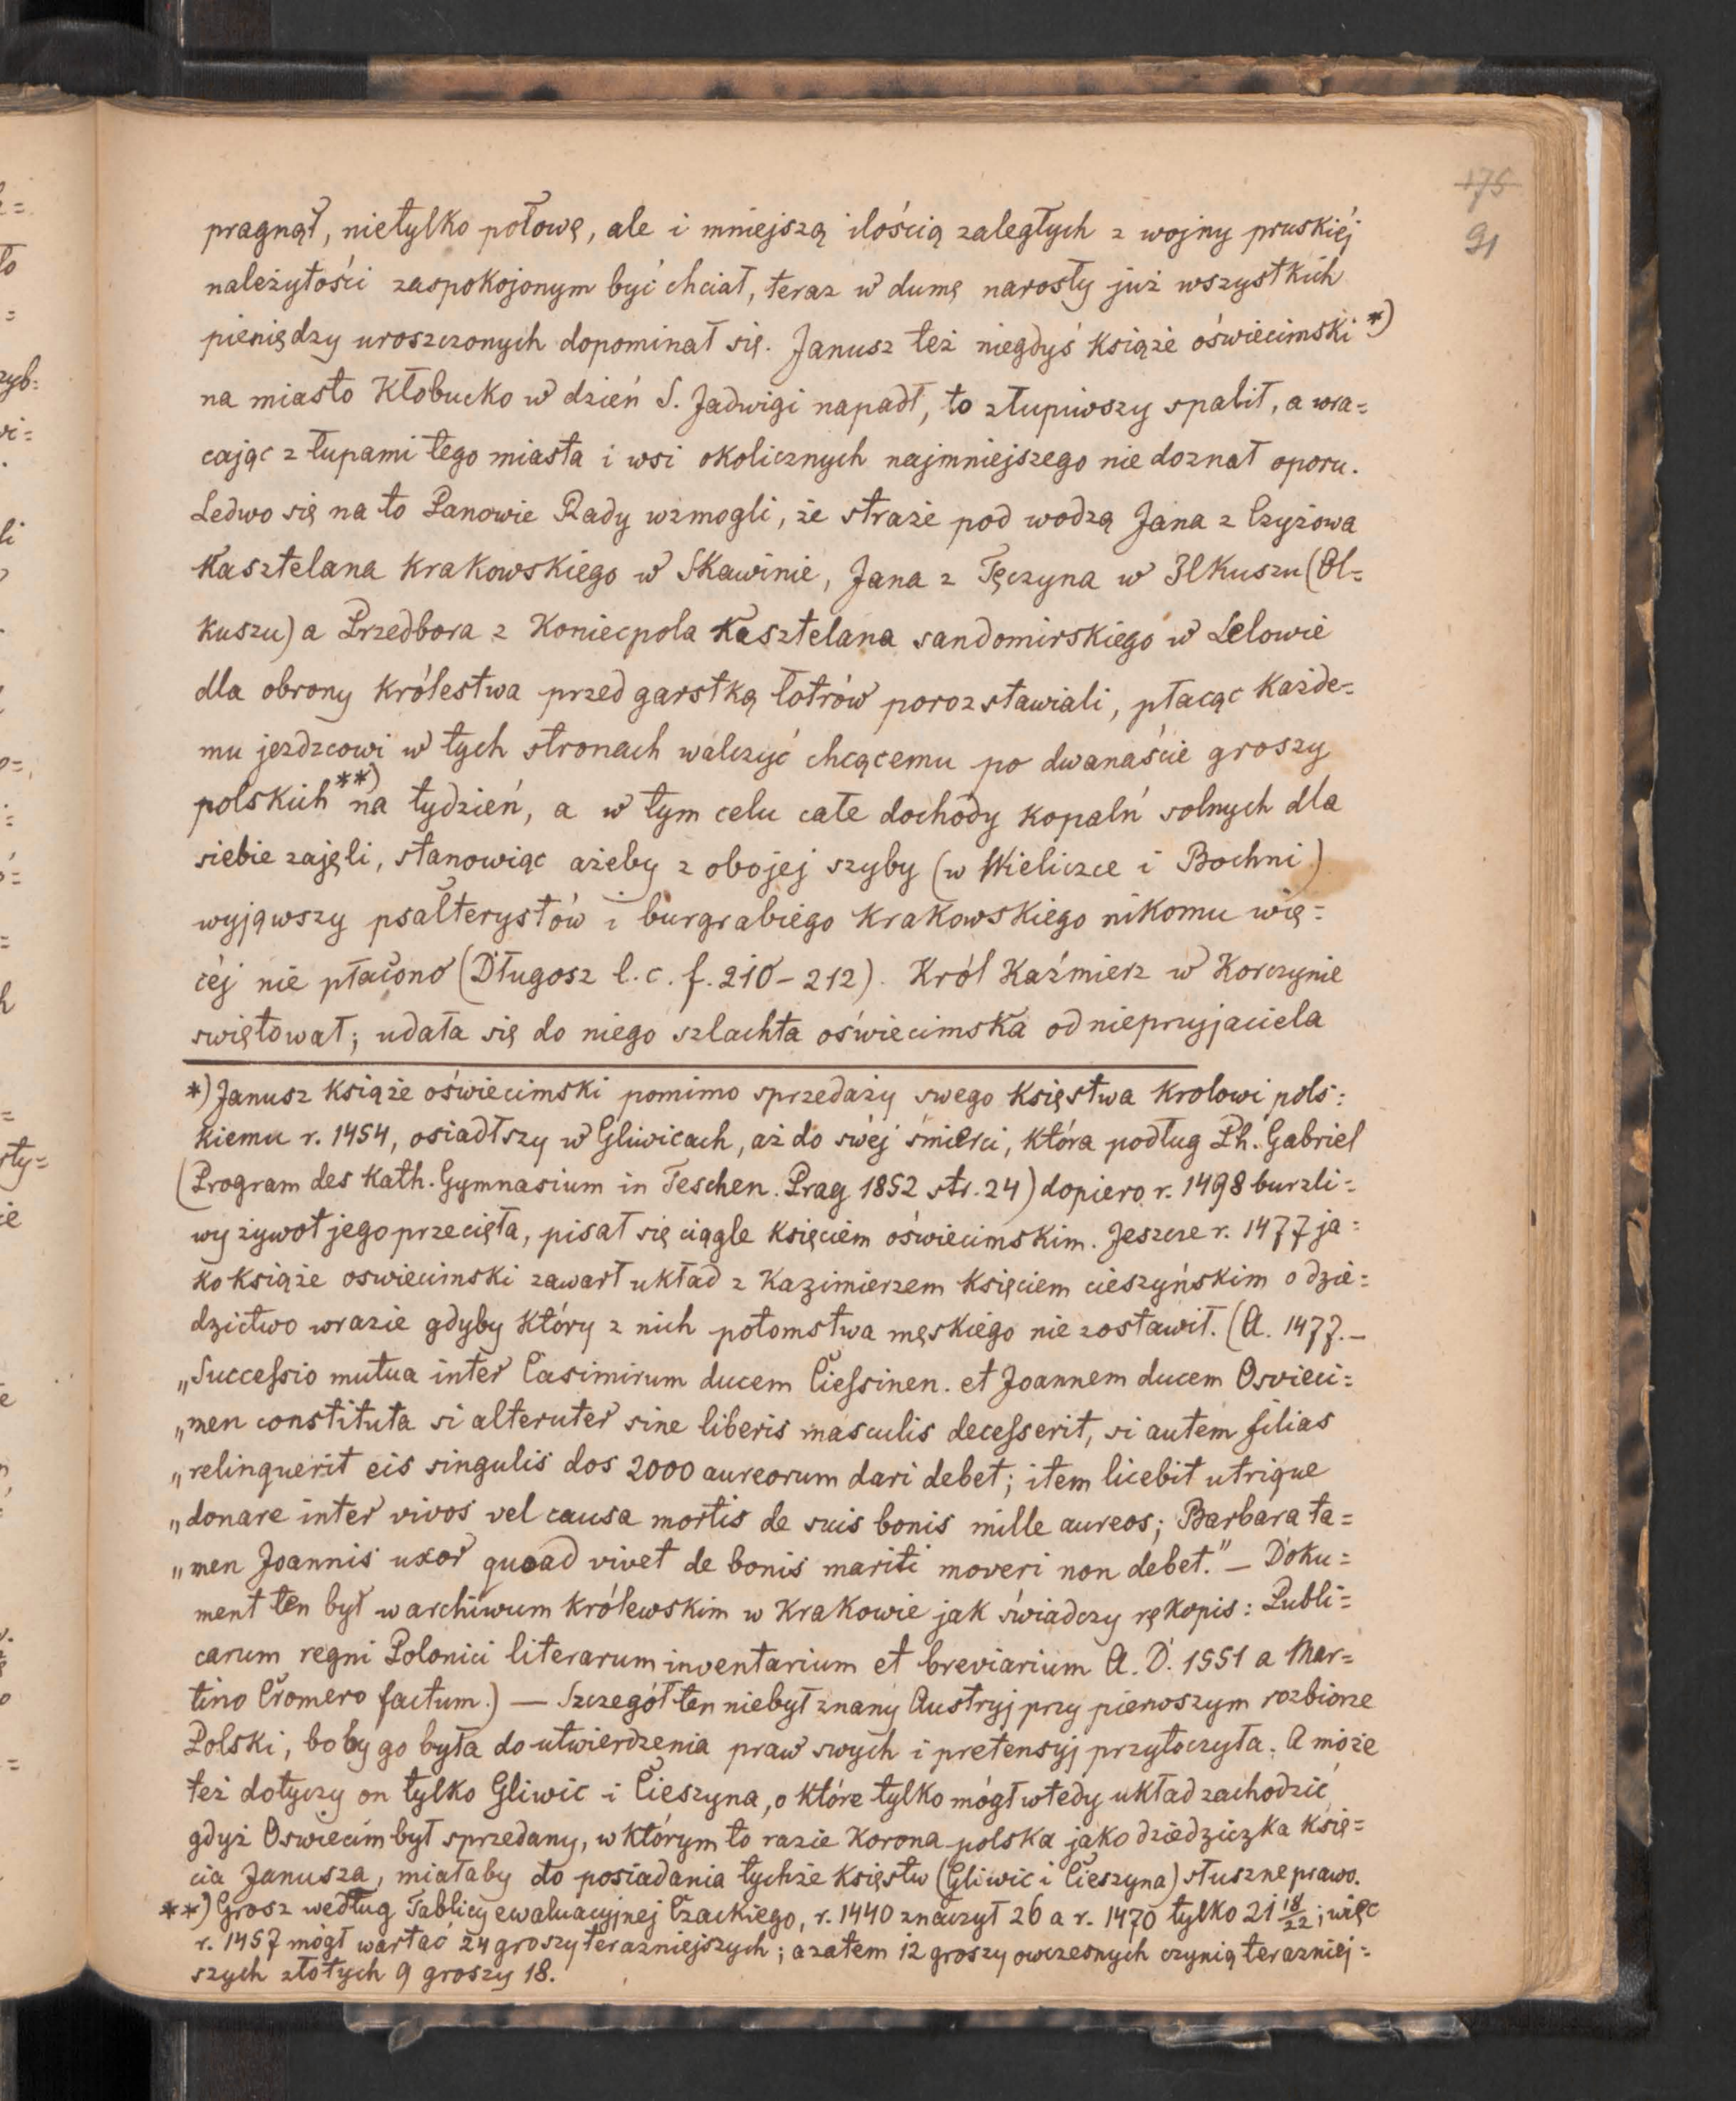 175
91
pragnął, nietylko połowę, ale i mniejszą ilością zaległych z wojny pruskiéj
należytości zaspokojonym być chciał, teraz w dumę narosły już wszystkich
pieniędzy uroszczonych dopominał się. Janusz też niegdyś książe oświecimski *)
na miasto Kłobucko w dzień S. Jadwigi napadł, to złupiwszy spalił, a wra=
cając z łupami tego miasta i wsi okolicznych najmniejszego nie doznał oporu.
Ledwo się na to Panowie Rady wzmogli, że straże pod wodzą Jana z Czyżowa
Kasztelana Krakowskiego w Skawinie, Jana z Tęczyna w Ilkuszu (Ol=
kuszu) a Przedbora z Koniecpola Kasztelana sandomirskiego w Lelowie
dla obrony królestwa przed garstką łotrów porozstawiali, płacąc każde=
mu jezdzcowi w tych stronach walczyć chcącemu po dwanaście groszy
polskich **) na tydzień, a w tym celu całe dochody kopalń solnych dla
siebie zajęli, stanowiąc ażeby z obojej szyby (w Wieliczce i Bochni)
wyjąwszy psałterystów i burgrabiego krakowskiego nikomu wię=
céj nie płacono (Długosz l. c. f. 210-212). Król Kaźmierz w Korczynie
swiętował; udała się do niego szlachta oświecimska od nieprzyjaciela
*) Janusz książe oświecimski pomimo sprzedaży swego księstwa krolowi pols:
kiemu r. 1454, osiadłszy w Gliwicach, aż do swéj śmierci, która podług Ph. Gabriel
(Program des Kath. Gymnasium in Teschen. Prag 1852 str. 24) dopiero r. 1498 burzli=
wy żywot jego przecięła, pisał się ciągle księciem oświecimskim. Jeszcze r. 1477 ja=
ko książe oswiecimski zawarł układ z Kazimierzem księciem cieszyńskim o dzie=
dzictwo wrazie gdyby który z nich potomstwa męskiego nie zostawił. (A. 1477. –
„Successio mutua inter Casimirum ducem Ciessinen. et Joannem ducem Osvieci=
„men constituta si alteruter sine liberis masculis decesserit, si autem filias
„relinquerit eis singulis dos 2000 aureorum dari debet; item licebit utrique
„donare inter vivos vel causa mortis de suis bonis mille aureos; Barbara ta=
„men Joannis uxor quoad vivet de bonis mariti moveri non debet." – Doku=
ment ten był w archiwum królewskim w Krakowie jak świadczy rękopis: Publi=
carum regni Polonici literarum inventarium et breviarium A. D. 1551 a Mar=
tino Cromero factum.) — Szczegół ten niebył znany Austryj przy pierwszym rozbiorze
Polski, boby go była do utwierdzenia praw swych i pretensyj przytoczyła. A może
też dotyczy on tylko Gliwic i Cieszyna, o które tylko mógł wtedy układ zachodzić
gdyż Oswiecim był sprzedany, w którym to razie Korona polska jako dziedziczka księ=
cia Janusza, miałaby do posiadania tychże księstw (Gliwic i Cieszyna) słuszne prawo.
**) Grosz według Tablicy ewaluacyjnej Czackiego, r. 1440 znaczył 26 a r. 1470 tylko 21 18/22; więc
r. 1457 mógł wartać 24 groszy terazniejszych; a zatem 12 groszy owczesnych czynią terazniej=
szych złotych 9 groszy 18.